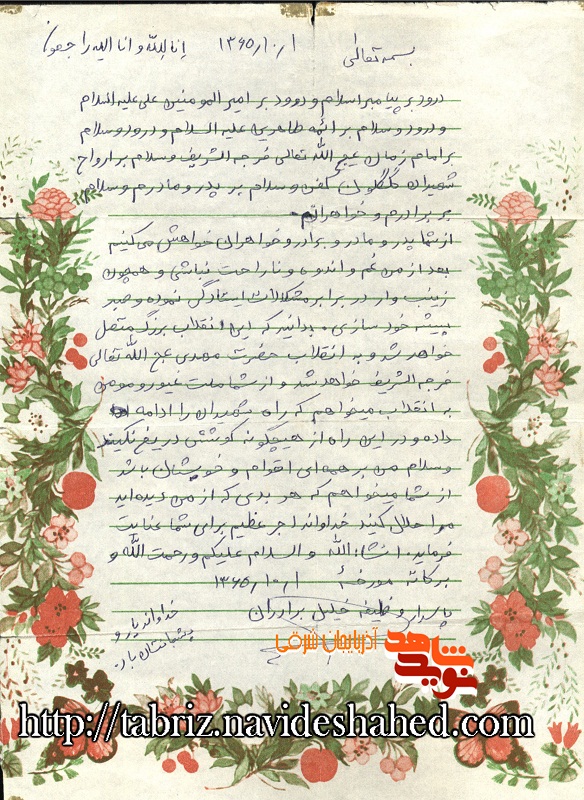 بسمه تعالی ۱۳۶۵/۱۰/۱ انا لله و انا الیه راجعون
درود بر پیامبر اسلام و درود بر امیر المومنین علی علیه السلام
و درود و سلام بر ائمه طاهرین علیه السلام و درود و سلام
بر امام زمان عج الله تعالی فرجه الشریف و سلام بر ارواح
شهیدان گلگون کفن و سلام بر پدر و مادرم و سلام
بر برادرم و خواهرانم
از شما پدر و مادر و برادر و خواهران خواهش می کنیم
بعد از من غم و اندوه و ناراحت نباشی و همچون
زینب وار در برابر مشکلات ایستادگی نموده و صبر
پیشه خود سازی. بدانید که این انقلاب بزرگ متصل
خواهد شد و به انقلاب حضرت مهدی عج الله تعالی
فرجه الشریف خواهد شد و از شما ملت غیور و مومن
به انقلاب میخواهم که راه شهیدان را ادامه
داده و در این راه از هیچگونه کوشش دریغ نکنید
و سلام من بر همه ای اقوام و خویشان باشد
از شما میخواهم که هر بدی که از من دیده اید
مرا حلال کنید خداواند اجر عظیم برای شما عنایت
فرماید. انشاء الله و السلام علیکم و رحمت الله و
برکاته مورخهٔ ۱۳۶۵/۱۰/۱
پاسدار وظیفه خلیل برادران
خداواند یار و
پشیبانتان باد.
نوید شاهد آذربایجان شرقی
http://tabriz.navideshahed.com